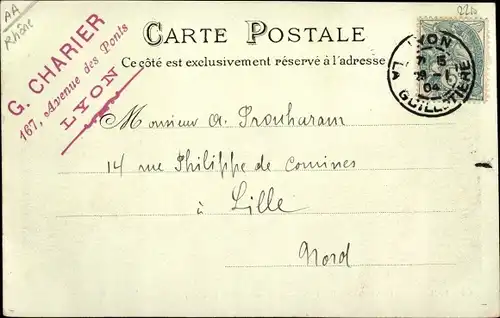 AA
Rhône
CARTE POSTALE
Ce côté est exclusivement réservé à l'adresse
G. CHARIER
167, Avenue des Ponts
LYON
LYON
LA GUILLOTIÈRE
04
Monsieur A.
14 rue Philippe de Comines
à
Lille
Nord